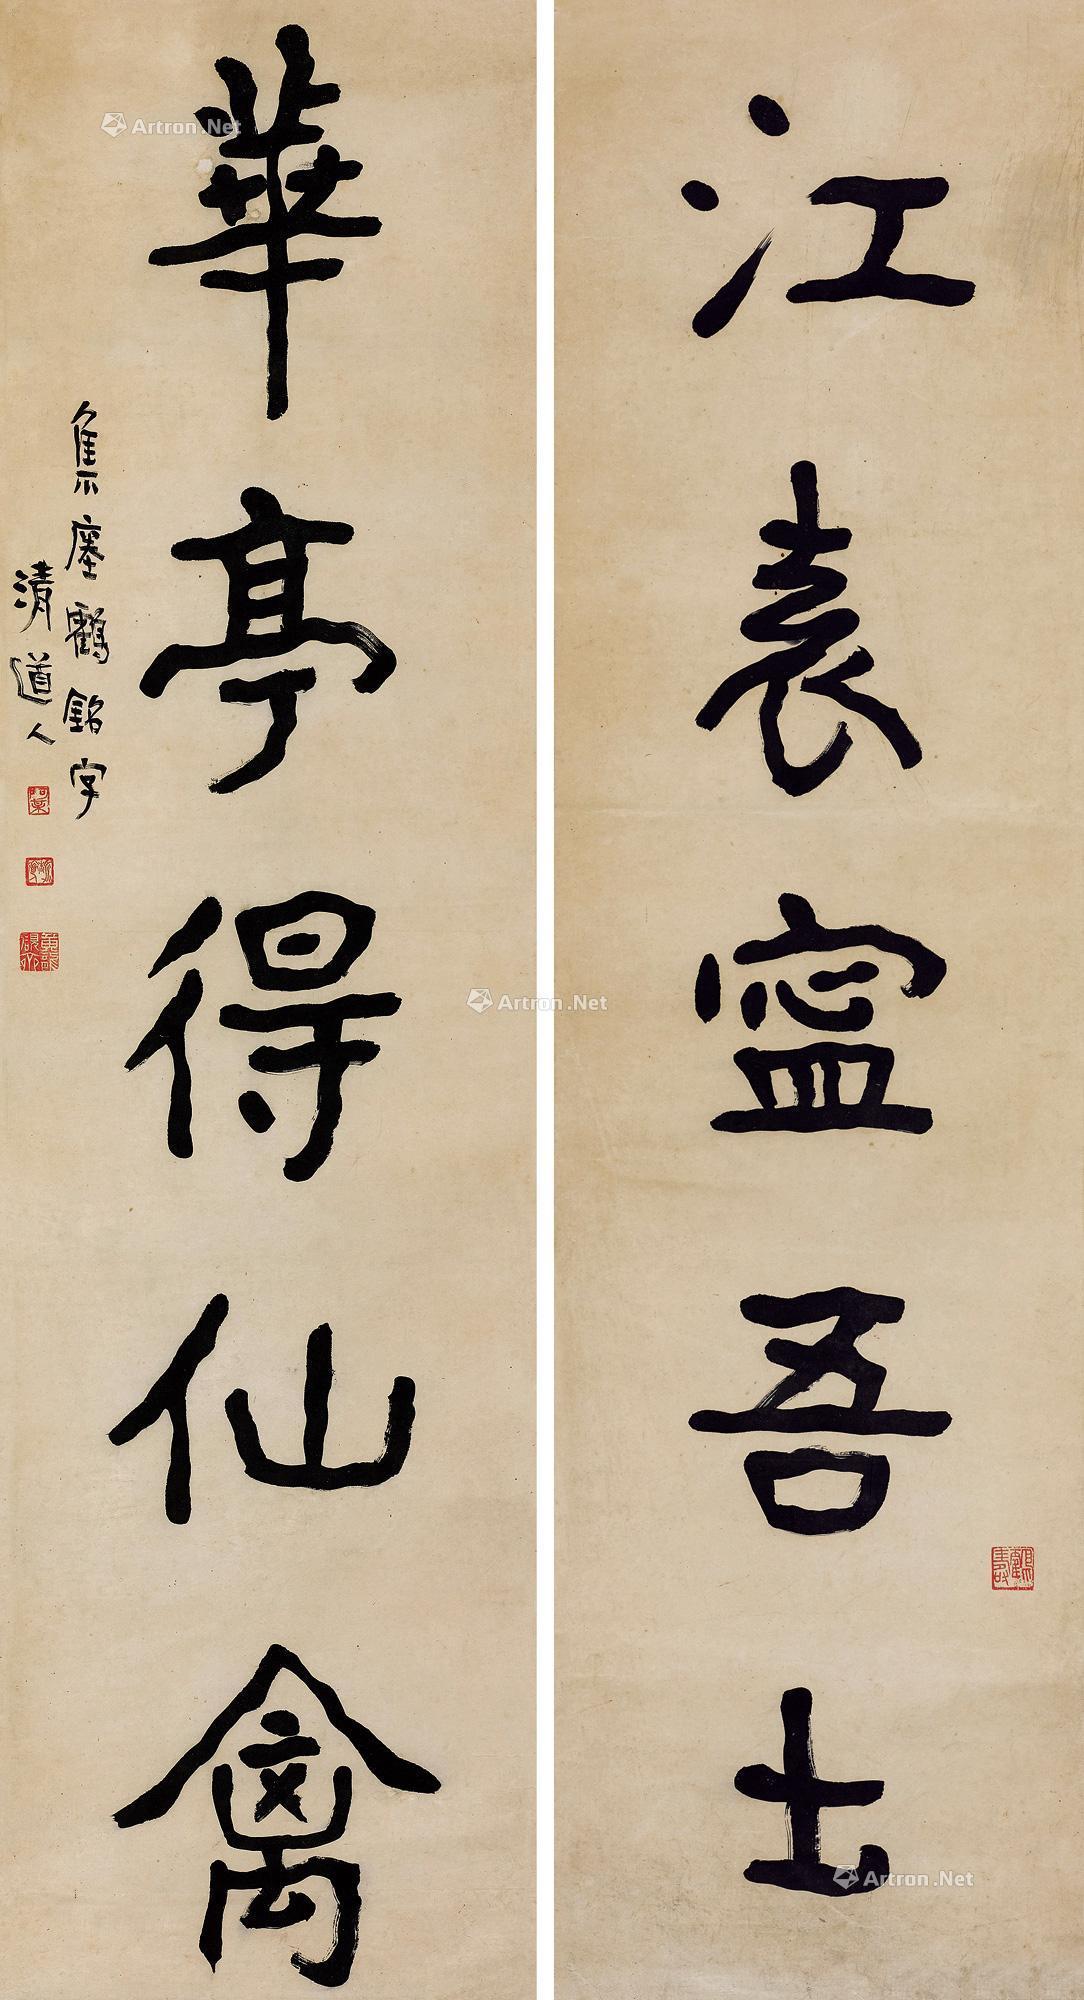 江表寍吾土
華亭得仙禽
集瘞鶴銘字
清道人
Artron.Net
Artron.Net
Artron.Net